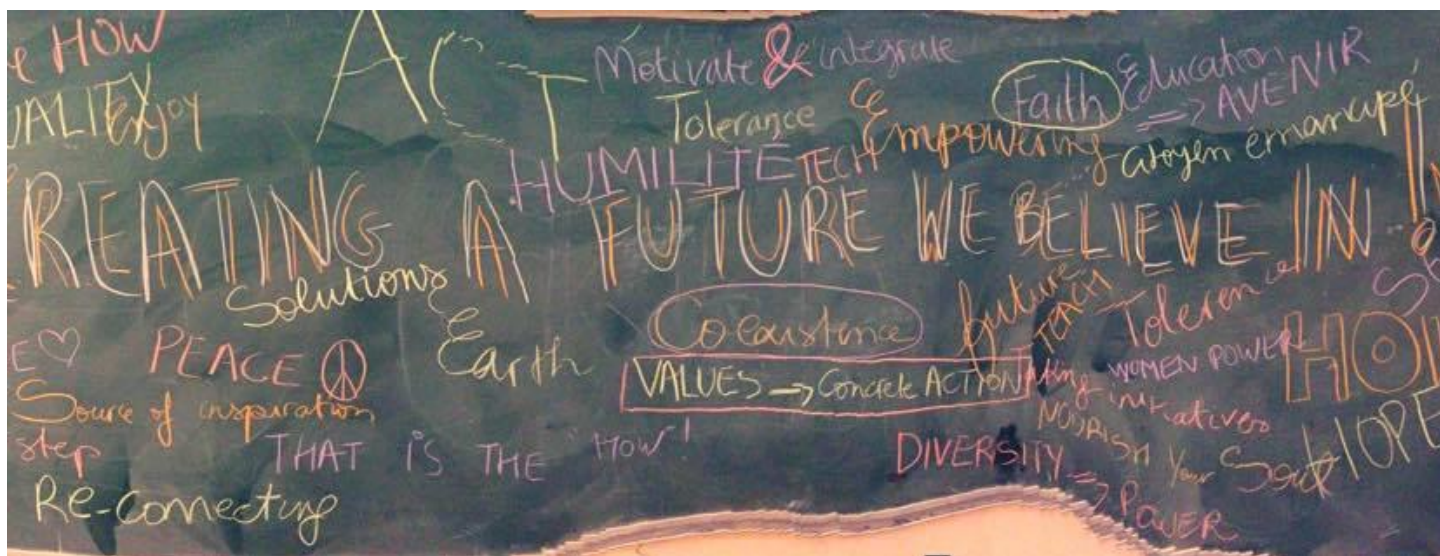 HOW
Enjoy
ACT
Motivate & integrate
Tolerance
Faith
Education
=> AVENIR
HUMILITÉ
TECH
Empowering
citoyen émancipé
REATING A FUTURE WE BELIEVE IN !
Solutions
future
TEACH
Tolerence
Coexistence
PEACE
Earth
VALUES → Concrete ACTION
WOMEN POWER
Taking initiatives
Source of inspiration
step
THAT iS THE HOW!
NOURISH Your Soul
HOPE
DIVERSITY => POWER
Re-connecting